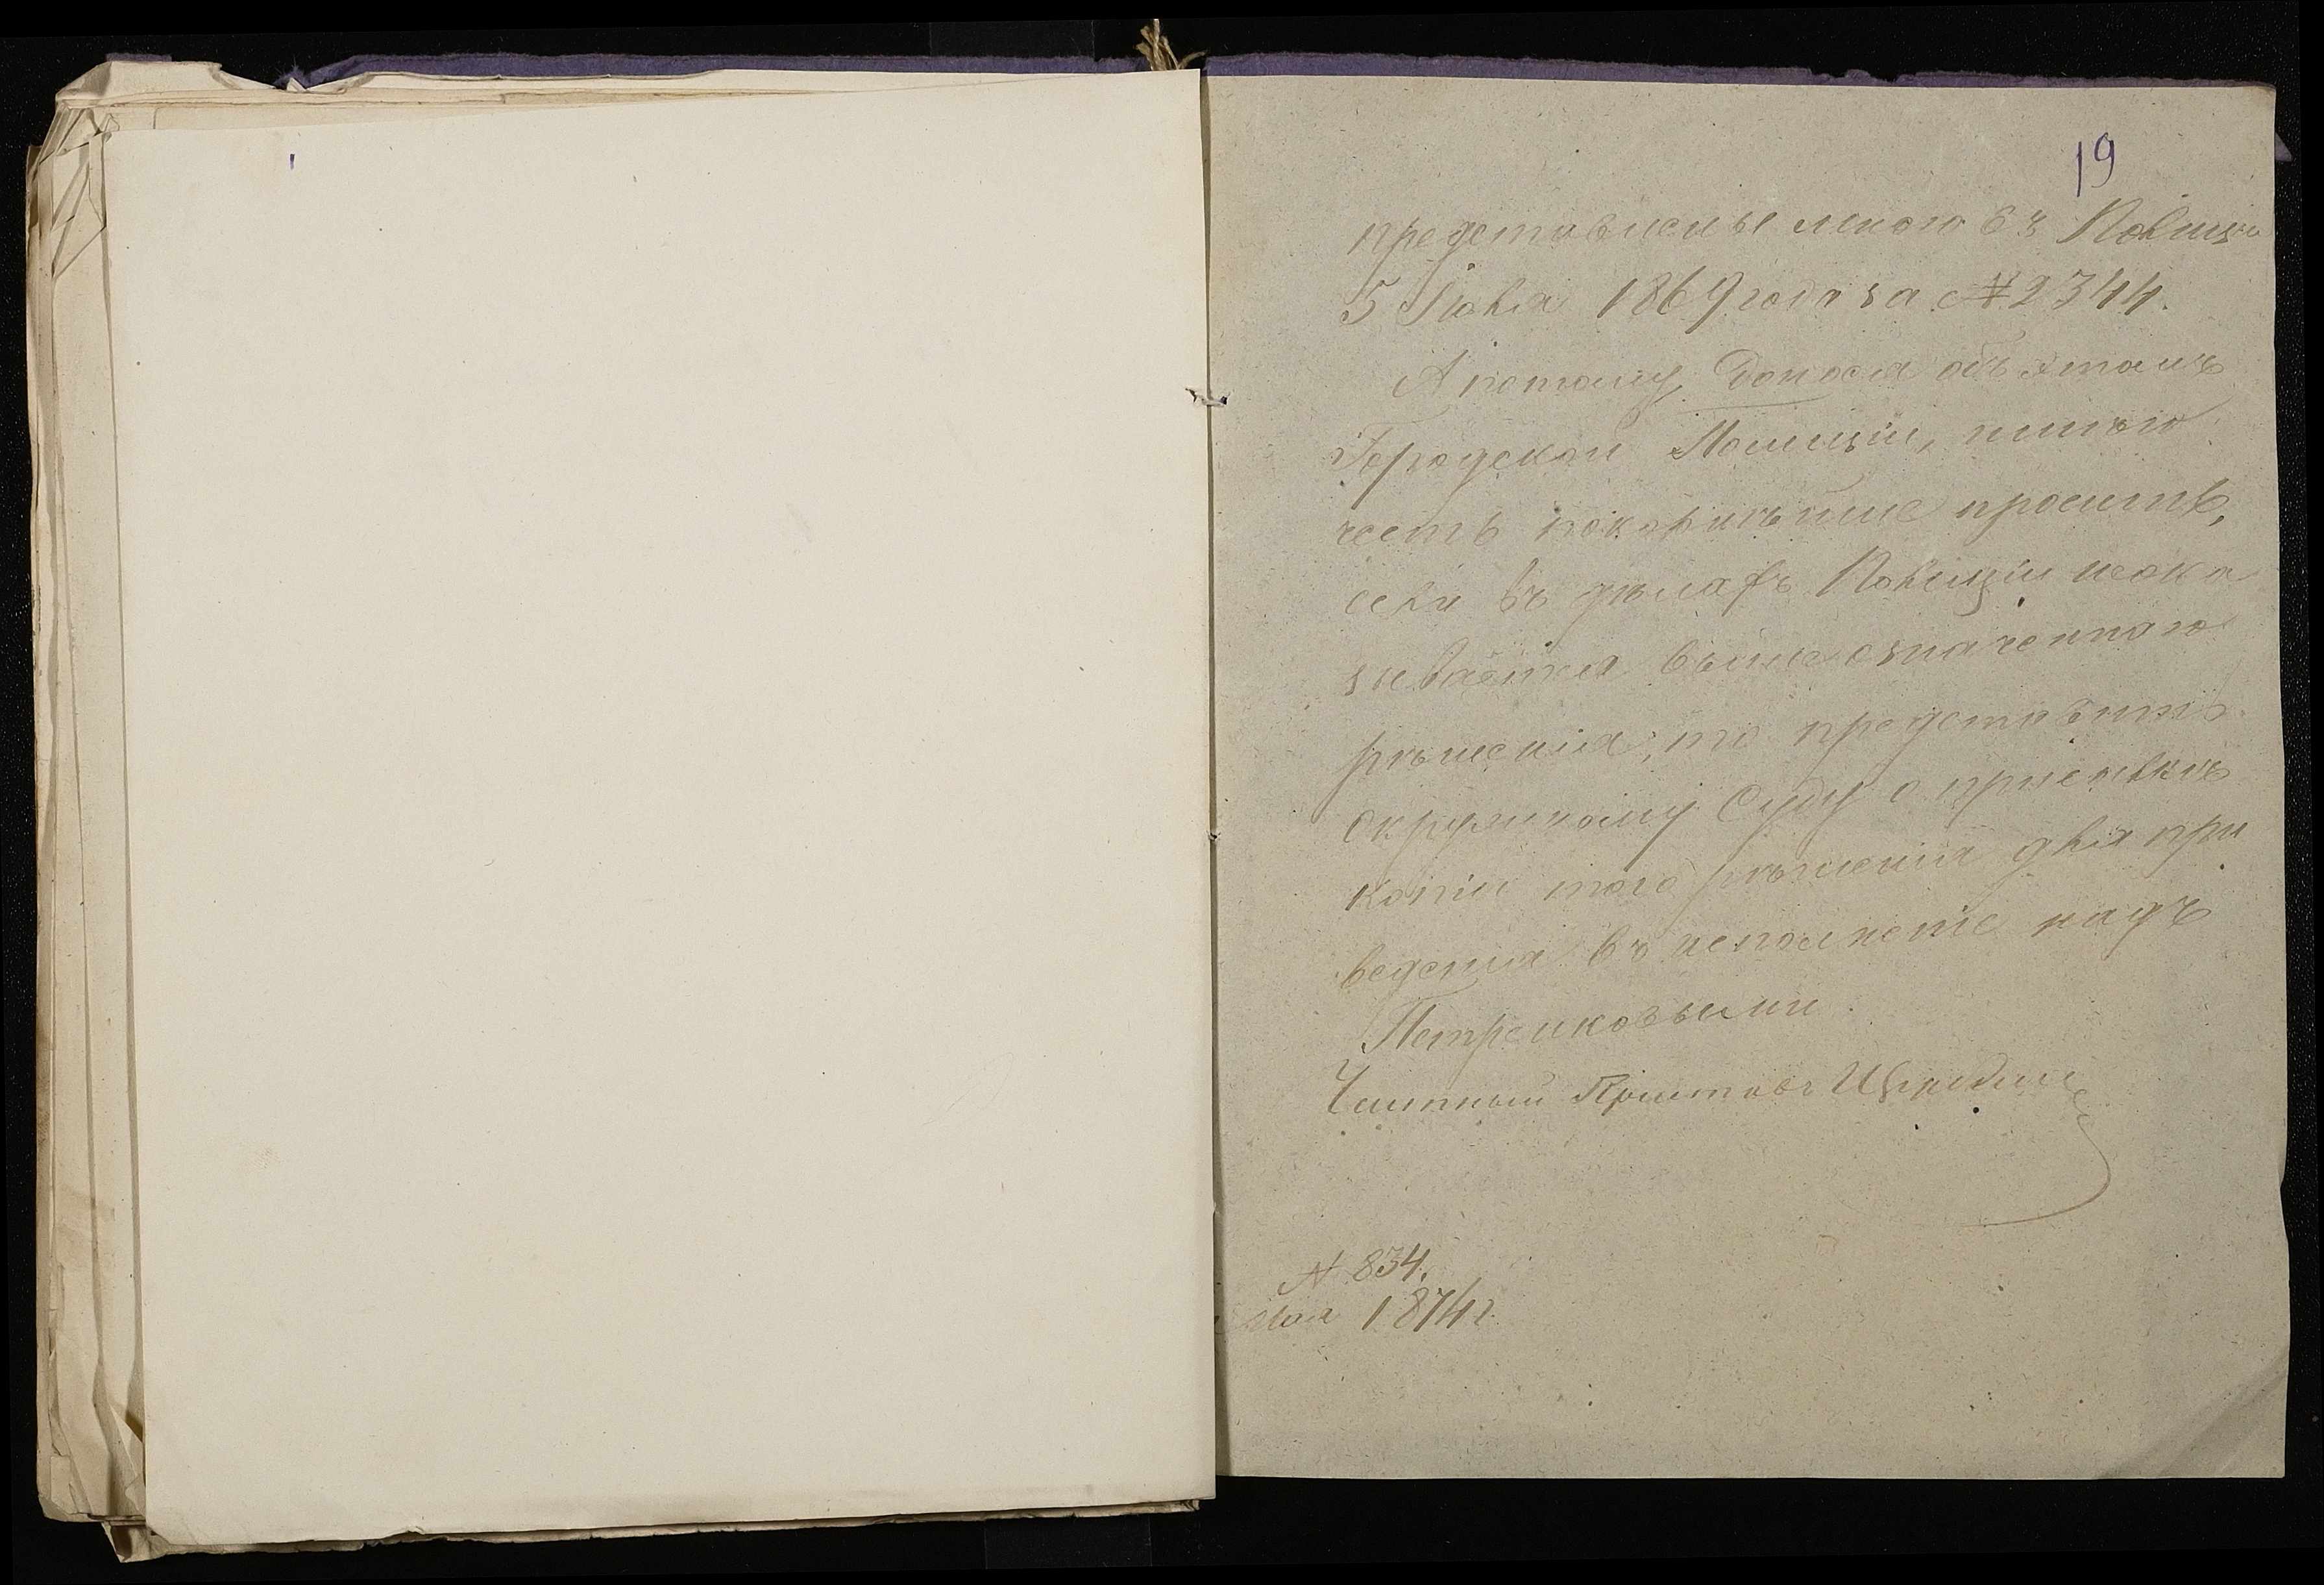 19
представлены мною въ Полицiю
5 Iюля 1869 года за № 2344.
А потому, донося объ этомъ
Городской Полицiи, имѣю
честь покорнѣйше просить,
если въ дѣлахъ Полицiи неока
зывается вышеозначеннаго
рѣшенiя, то представить
Окружному Суду о присылкѣ
копiи того рѣшенiя для при
веденiя въ исполненiе надъ
Петренковыми
Частный Приставъ
№ 834.
Мая 1874 г.